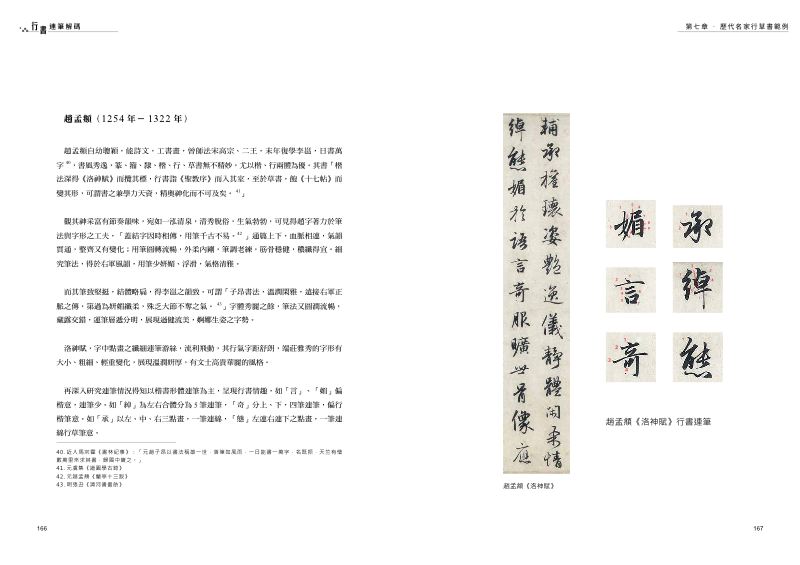 行書 連筆解碼
第七章 ‧ 歷代名家行草書範例
趙孟頫（1254 年－ 1322 年）
趙孟頫自幼聰穎，能詩文，工書畫，曾師法宋高宗、二王，末年復學李邕，日書萬
字 40，書風秀逸，篆、籀、隸、楷、行、草書無不精妙，尤以楷、行兩體為優。其書「楷
法深得《洛神賦》而攬其標，行書詣《聖教序》而入其室，至於草書，飽《十七帖》而
變其形，可謂書之兼學力天資，精奧神化而不可及矣。41」
觀其神采富有節奏韻味，宛如一泓清泉，清秀脫俗，生氣勃勃，可見得趙字著力於筆
法與字形之工夫，「蓋結字因時相傳，用筆千古不易。42」通篇上下，血脈相連，氣韻
貫通，整齊又有變化；用筆圓轉流暢，外柔內剛，筆調老練，筋骨穩健，穠纖得宜。細
究筆法，得於右軍風韻，用筆少妍媚、浮滑，氣格清雅。
而其筆致堅挺，結體略扁，得李邕之韻致，可謂「子昂書法，溫潤閑雅，遠接右軍正
脈之傳，第過為妍媚纖柔，殊乏大節不奪之氣。43」字體秀麗之餘，筆法又圓潤流暢，
藏露交錯，運筆層遞分明，展現遒健流美，婀娜生姿之字勢。
洛神賦，字中點畫之纖細連筆游絲，流利飛動，其行氣字距舒朗，端莊雅秀的字形有
大小、粗細、輕重變化，展現溫潤妍厚，有文士高貴華麗的風格。
再深入研究連筆情況得知以楷書形體連筆為主，呈現行書情趣，如「言」、「媚」偏
楷意，連筆少。如「綽」為左右合體分為 5 筆連筆，「奇」分上、下，四筆連筆，偏行
楷筆意。如「承」以左、中、右三點畫，一筆連綿，「態」左連右連下之點畫，一筆連
綿行草筆意。
40. 近人馬宗霍《書林紀事》：「元趙子昂以書法稱雄一世，落筆如風雨，一日能書一萬字，名既振，天竺有僧
數萬里來求其書，歸國中寶之。」
41. 元虞集《道園學古錄》
42. 元趙孟頫《蘭亭十三跋》
43. 明張丑《清河書畫舫》
166
輔承權瓌姿艷逸儀靜體閑柔情
綽態媚於語言奇服曠世骨像應
趙孟頫《洛神賦》
媚
承
言
綽
奇
態
趙孟頫《洛神賦》行書連筆
167